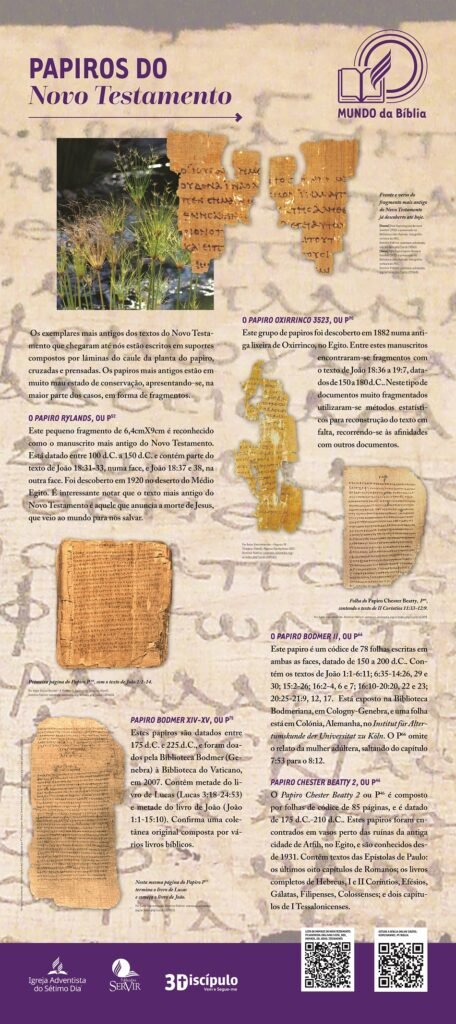 PAPIROS DO
Novo Testamento
MUNDO da Bíblia
Frente e verso do
fragmento mais antigo
do Novo Testamento
já descoberto até hoje.
Os exemplares mais antigos dos textos do Novo Testa-
mento que chegaram até nós estão escritos em suportes
compostos por lâminas do caule da planta do papiro,
cruzadas e prensadas. Os papiros mais antigos estão em
muito mau estado de conservação, apresentando-se, na
maior parte dos casos, em forma de fragmentos.
O PAPIRO RYLANDS, OU P52
Este pequeno fragmento de 6,4cmX9cm é reconhecido
como o manuscrito mais antigo do Novo Testamento.
Está datado entre 100 d.C. a 150 d.C. e contém parte do
texto de João 18:31-33, numa face, e João 18:37 e 38, na
outra face. Foi descoberto em 1920 no deserto do Médio
Egito. É interessante notar que o texto mais antigo do
Novo Testamento é aquele que anuncia a morte de Jesus,
que veio ao mundo para nós salvar.
O PAPIRO OXIRRINCO 3523, OU P90
Este grupo de papiros foi descoberto em 1882 numa anti-
ga lixeira de Oxirrinco, no Egito. Entre estes manuscritos
encontraram-se fragmentos com
o texto de João 18:36 a 19:7, data-
dos de 150 a 180 d.C.. Neste tipo de
documentos muito fragmentados
utilizaram-se métodos estatísti-
cos para reconstrução do texto em
falta, recorrendo-se às afinidades
com outros documentos.
Folha do Papiro Chester Beatty, P46,
contendo o texto de II Coríntios 11:33-12:9.
Primeira página do Papiro P66, com o texto de João 1:1-14.
O PAPIRO BODMER II, OU P66
Este papiro é um códice de 78 folhas escritas em
ambas as faces, datado de 150 a 200 d.C.. Con-
tém os textos de João 1:1-6:11; 6:35-14:26, 29 e
30; 15:2-26; 16:2-4, 6 e 7; 16:10-20:20, 22 e 23;
20:25-21:9, 12, 17. Está exposto na Biblioteca
Bodmeriana, em Cologny-Genebra, e uma folha
está em Colónia, Alemanha, no Institut für Alter-
tumskunde der Universitat zu Köln. O P66 omite
o relato da mulher adúltera, saltando do capítulo
7:53 para o 8:12.
PAPIRO BODMER XIV-XV, OU P75
Estes papiros são datados entre
175 d.C. e 225 d.C., e foram doa-
dos pela Biblioteca Bodmer (Ge-
nebra) à Biblioteca do Vaticano,
em 2007. Contém metade do li-
vro de Lucas (Lucas 3:18-24:53)
e metade do livro de João (João
1:1-15:10). Confirma uma cole-
tânea original composta por vá-
rios livros bíblicos.
Nesta mesma página do Papiro P75
termina o livro de Lucas
e começa o livro de João.
PAPIRO CHESTER BEATTY 2, OU P46
O Papiro Chester Beatty 2 ou P46 é composto
por folhas de códice de 85 páginas, e é datado
de 175 d.C.-210 d.C.. Estes papiros foram en-
contrados em vasos perto das ruínas da antiga
cidade de Atfih, no Egito, e são conhecidos des-
de 1931. Contém textos das Epístolas de Paulo:
os últimos oito capítulos de Romanos; os livros
completos de Hebreus, I e II Coríntios, Efésios,
Gálatas, Filipenses, Colossenses; e dois capítu-
los de I Tessalonicenses.
Igreja Adventista
do Sétimo Dia
SERVIR
3Discípulo
Vem e Segue-me